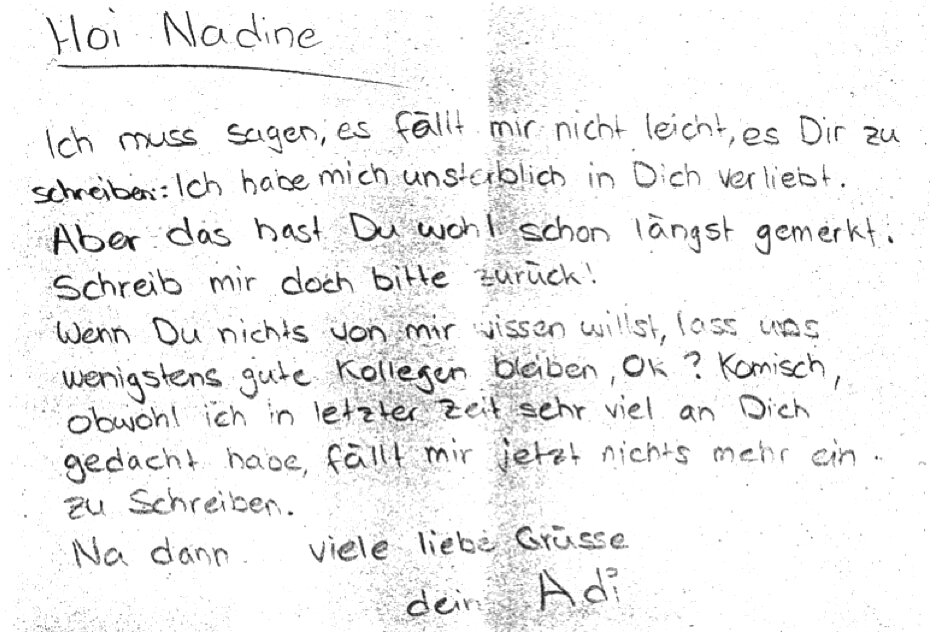 Hoi Nadine
Ich muss sagen, es fällt mir nicht leicht, es Dir zu
schreiben: Ich habe mich unsterblich in Dich verliebt.
Aber das hast Du wohl schon längst gemerkt.
Schreib mir doch bitte zurück!
Wenn Du nichts von mir wissen willst, lass uns
wenigstens gute Kollegen bleiben, Ok? Komisch,
obwohl ich in letzter Zeit sehr viel an Dich
gedacht habe, fällt mir jetzt nichts mehr ein
zu Schreiben.
Na dann viele liebe Grüsse
dein Adi